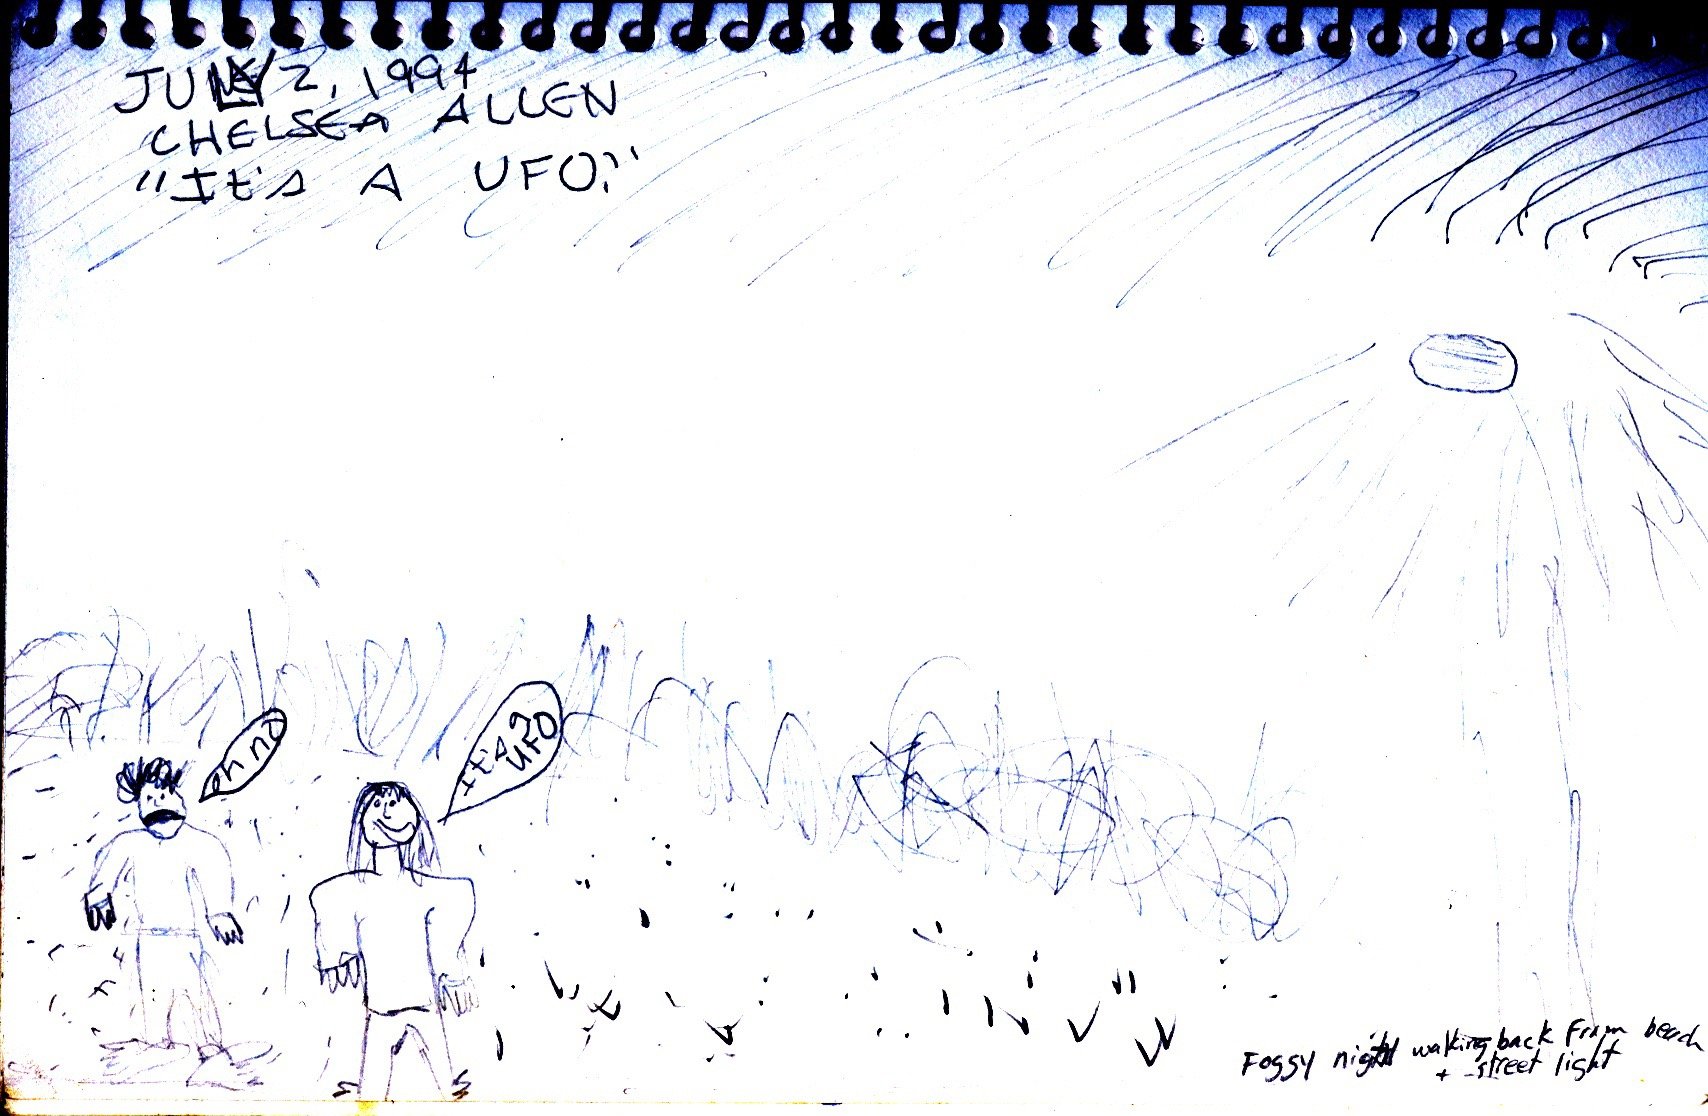 JULY 2, 1994
CHELSEA ALLEN
"It's A UFO."
oh no
it's a
UFO
Foggy night walking back from beach
+ street light